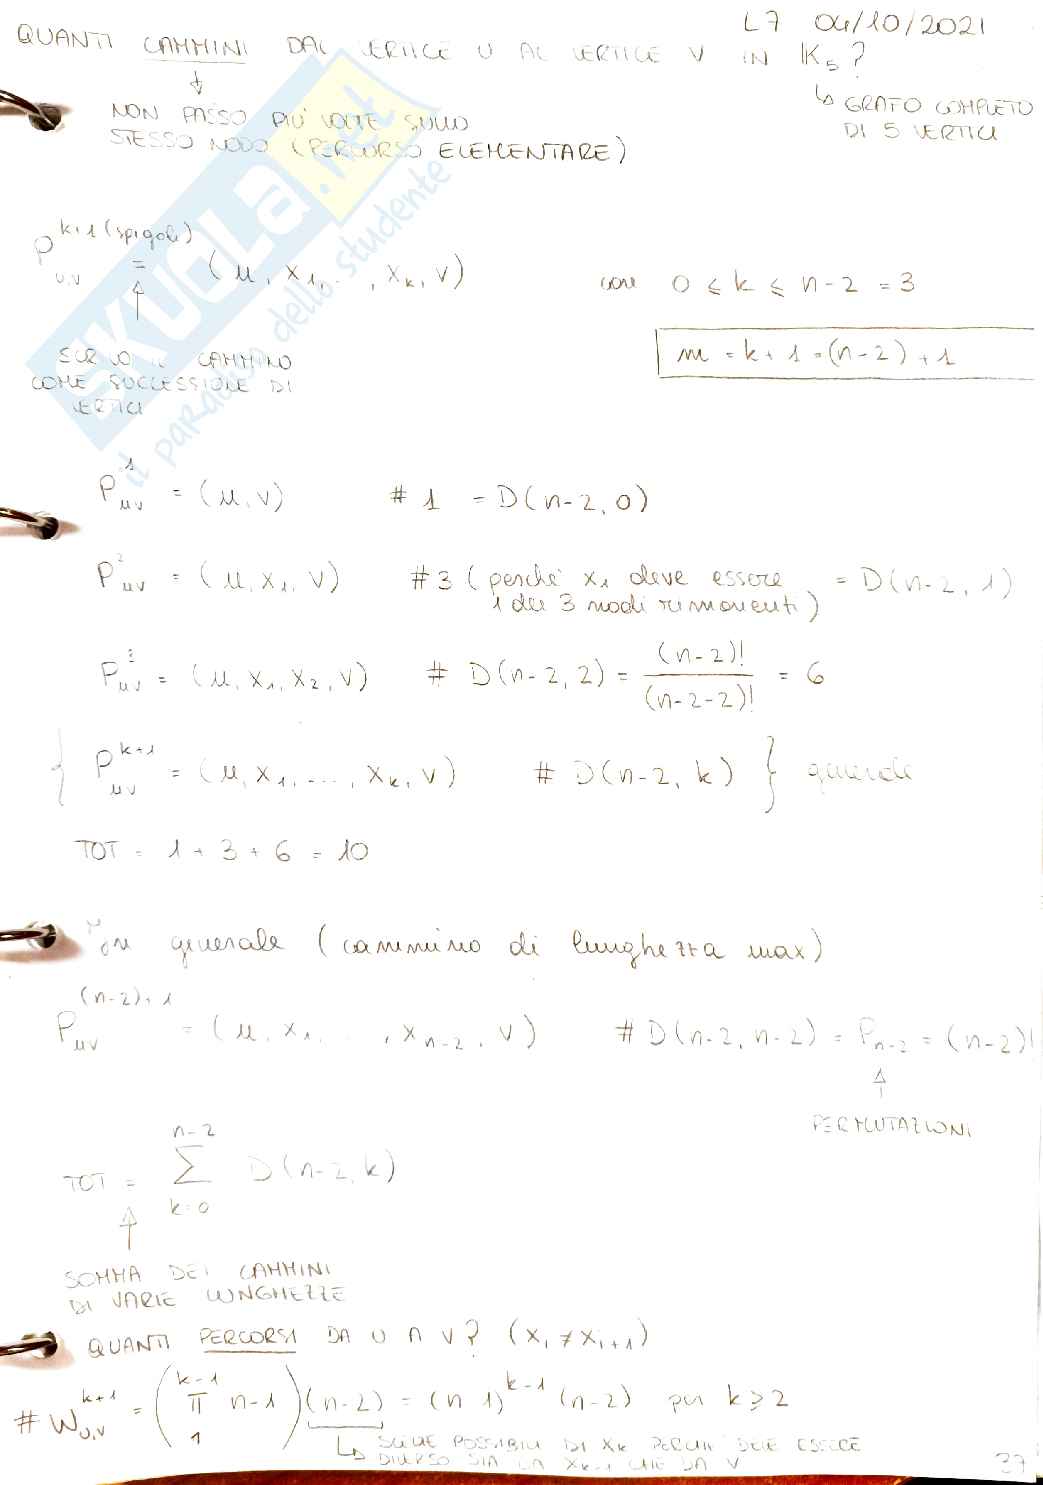 L7 04/10/2021
QUANTI CAMMINI DAL VERTICE U AL VERTICE V IN K₅?
↳ GRAFO COMPLETO
DI 5 VERTICI
NON PASSO PIÙ VOLTE SULLO
STESSO NODO (PERCORSO ELEMENTARE)
P_{u,v}^{k+1 (spigoli)} = (u, x₁, ..., x_k, v) con 0 ≤ k ≤ n-2 = 3
m = k+1 = (n-2)+1
SCRIVO IL CAMMINO
COME SUCCESSIONE DI
VERTICI
P_{uv}^1 = (u, v) # 1 = D(n-2, 0)
P_{uv}^2 = (u, x₁, v) # 3 (perché x₁ deve essere = D(n-2, 1)
1 dei 3 nodi rimanenti)
P_{uv}^3 = (u, x₁, x₂, v) # D(n-2, 2) = (n-2)!/(n-2-2)! = 6
{ P_{uv}^{k+1} = (u, x₁, ..., x_k, v) # D(n-2, k) } generale
TOT = 1 + 3 + 6 = 10
In generale (cammino di lunghezza max)
P_{uv}^{(n-2)+1} = (u, x₁, ..., x_{n-2}, v) # D(n-2, n-2) = P_{n-2} = (n-2)!
PERMUTAZIONI
TOT = ∑_{k=0}^{n-2} D(n-2, k)
SOMMA DEI CAMMINI
DI VARIE LUNGHEZZE
QUANTI PERCORSI DA U A V? (x_i ≠ x_{i+1})
# W_{u,v}^{k+1} = (∏_{1}^{k-1} n-1)(n-2) = (n-1)^{k-1} (n-2) per k ≥ 2
↳ SCELTE POSSIBILI DI x_k PERCHÉ DEVE ESSERE
DIVERSO SIA DA x_{k-1} CHE DA V
37
SKUOLA.net
il paradiso dello studente